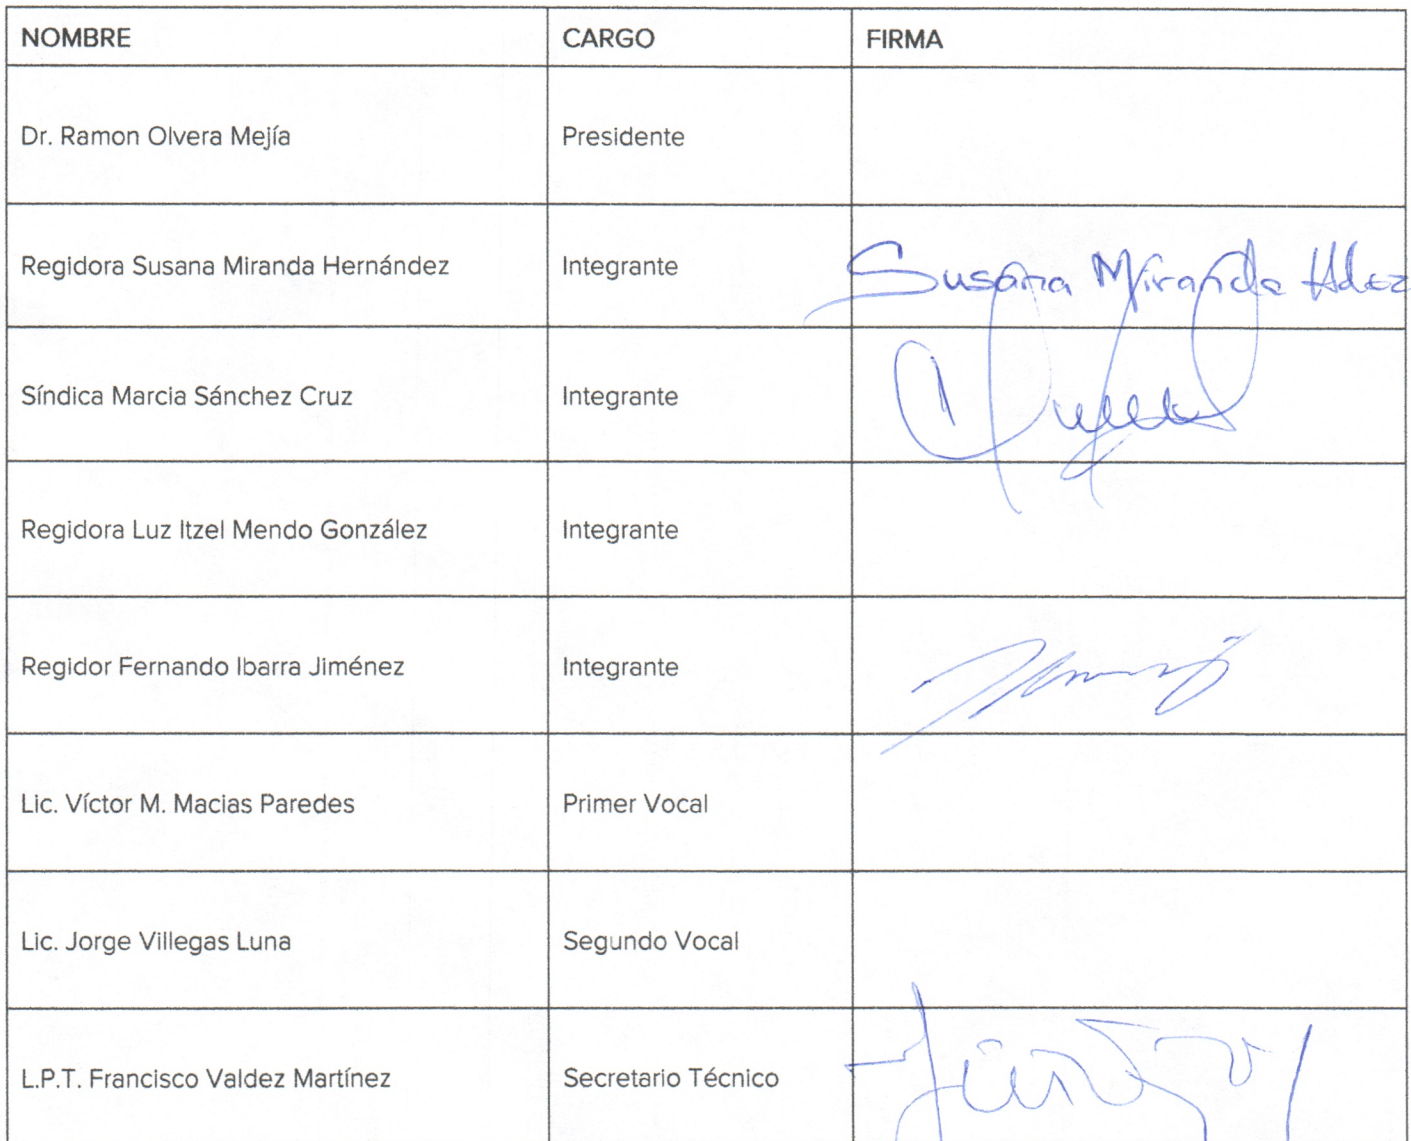 NOMBRE CARGO FIRMA
Dr. Ramon Olvera Mejía Presidente
Regidora Susana Miranda Hernández Integrante Susana Miranda Hdez
Síndica Marcia Sánchez Cruz Integrante
Regidora Luz Itzel Mendo González Integrante
Regidor Fernando Ibarra Jiménez Integrante
Lic. Víctor M. Macias Paredes Primer Vocal
Lic. Jorge Villegas Luna Segundo Vocal
L.P.T. Francisco Valdez Martínez Secretario Técnico